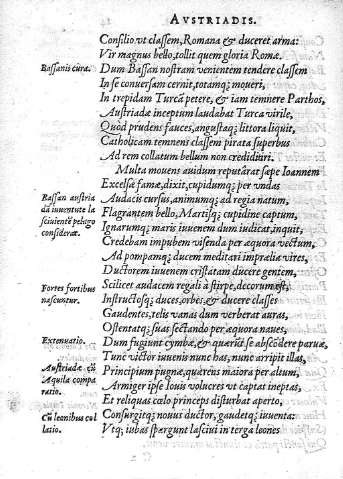 AVSTRIADIS.
Consilio vt classem, Romana & duceret arma:
Vir magnus bello, tollit quem gloria Romæ.
Bassanis cura.
Dum Bassan nostram venientem tendere classem
In se conuersam cernit, totamq; moueri,
In trepidam Turcã petere, & iam temnere Parthos,
Austriadæ inceptum laudabat Turca virile,
Quòd prudens fauces, angustaq; littora liquit,
Catholicam temnens classem pirata superbus
Ad rem collatum bellum non credidi
Multa mouens auidum reputârat sæpe Ioannem
Excelsæ famæ, dixit, cupidumq; per vndas
Bassan austria
dã iuuentute la
sciuientẽ pelago
considerat.
Audacis cursus, animumq; ad regia natum,
Flagrantem bello, Martisq; cupidine captum,
Ignarumq; maris iuuenem dum iudicat, inquit,
Credebam impubem visenda per æquora vectum,
Ad pompamq; ducem meditari imprælia vires,
Ductorem iuuenem cristatam ducere gentem,
Fortes fortibus
nascuntur.
Scilicet audacem regali à stirpe, decorum est,
Instructosq; duces, orbes, & ducere classes
Gaudentes, velis vanas dum verberat auras,
Ostentatq; suas sectando per æquora naues,
Extenuatio.
Dum fugiunt cymbæ, & quærũt se abscõdere paruæ,
Tunc victor iuuenis nunc has, nunc arripit illas,
Austriadæ cũ
Aquila compa
ratio.
Principium pugnæ, quærens maiora per altum,
Armiger ipse Iouis volucres vt captat ineptas,
Et reliquas cœlo princeps disturbat aperto,
Cũ leonibus col
latio.
Consurgitq; nouus ductor, gaudetq; iuuenta:
Vtq; iubas spargunt lasciui in terga leones